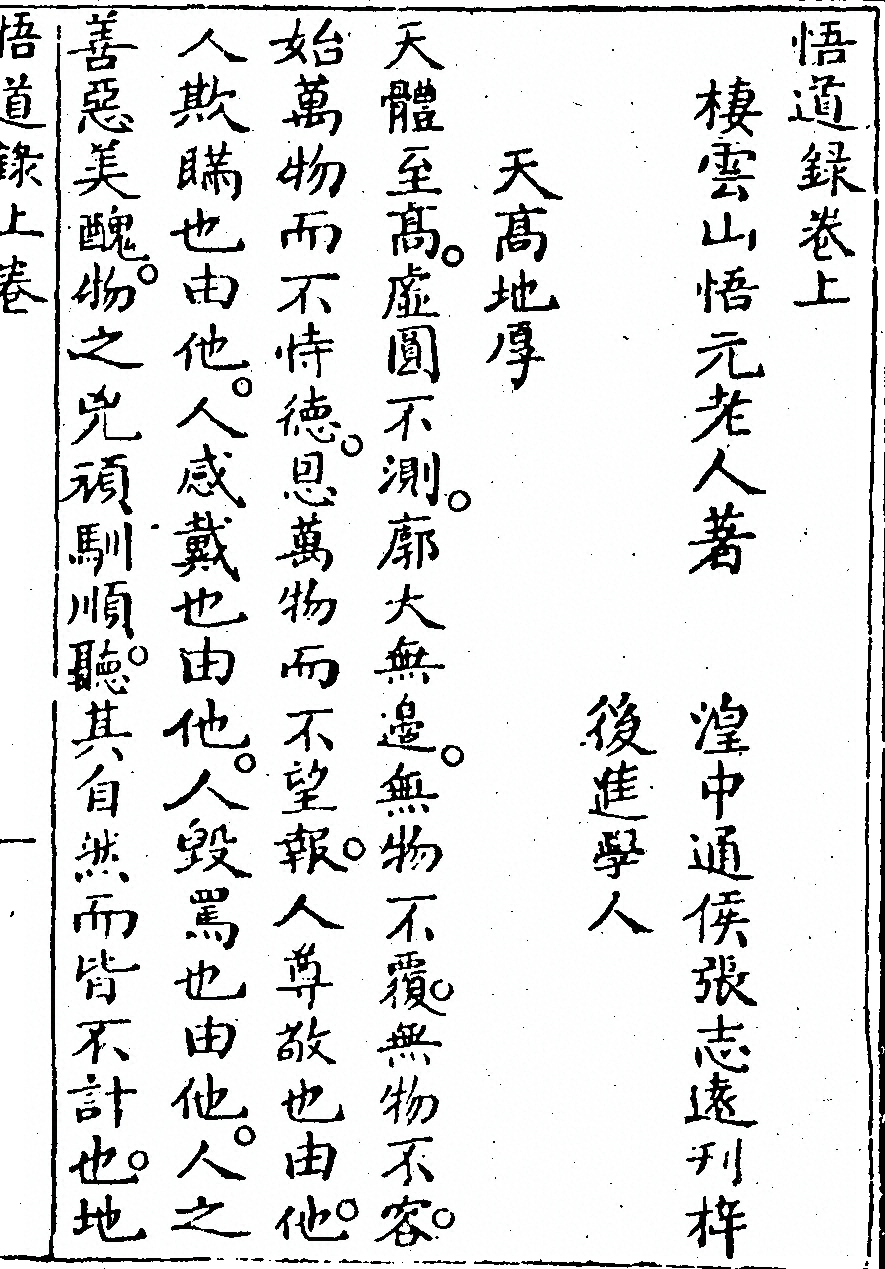 悟道錄卷上
棲雲山悟元老人著　湟中通侯張志遠刊梓
後進學人
天高地厚
天體至高。虛圓不測。廓大無邊。無物不覆。無物不容。
始萬物而不恃德。恩萬物而不望報。人尊敬也由他。
人欺瞞也由他。人感戴也由他。人毀罵也由他。人之
善惡美醜。物之兇頑馴順。聽其自然而皆不計也。地
悟道錄上卷
一